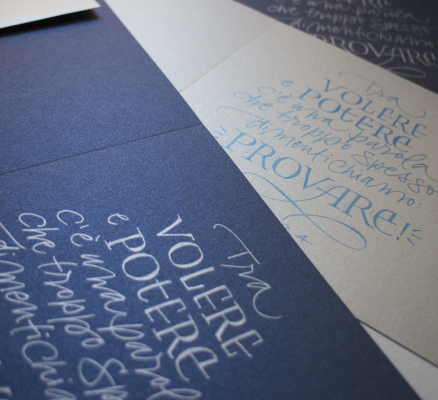 Tra
VOLERE
e POTERE
c'è una parola
che troppo spesso
dimentichiamo:
PROVARE!
Tra
VOLERE
e POTERE
c'è una parol
che troppo spe
dimentichia
che troppo
dimentichiamo
PROVARE